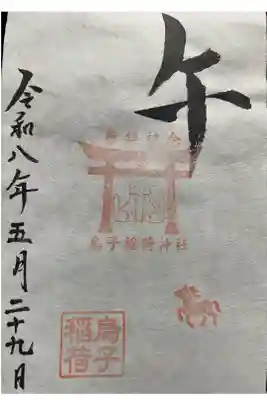 午
令和八年五月二十九日
烏子稲荷神社
烏子
稲荷